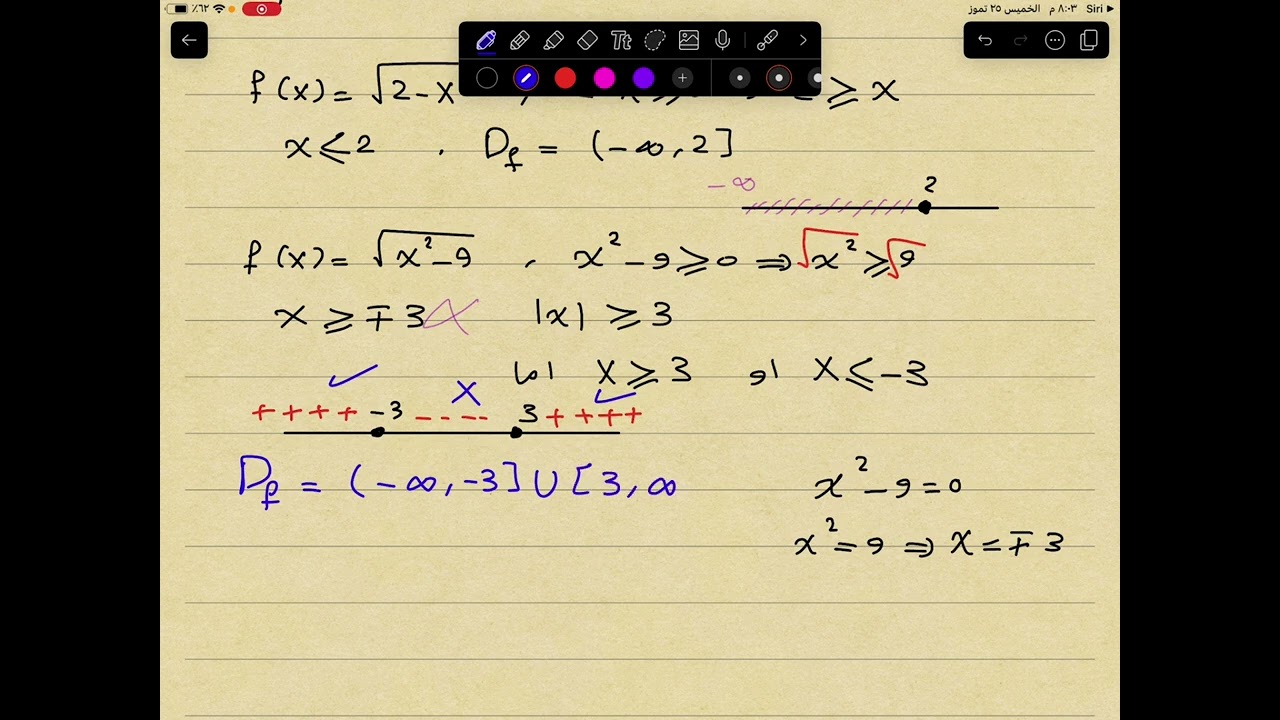 ٪٦٢ الخميس ٢٥ تموز ٨:٠٣ م Siri
Tt
f(x) = √2-x , ≥ x
x ≤ 2 . Df = (-∞, 2]
-∞ 2
f(x) = √x²-9 , x² - 9 ≥ 0 ⇒ √x² ≥ √9
x ≥ ∓ 3 |x| ≥ 3
اما x ≥ 3 او x ≤ -3
✓ x ✓
++++ -3 ---- 3 ++++
Df = (-∞, -3] ∪ [3, ∞
x² - 9 = 0
x² = 9 ⇒ x = ∓ 3